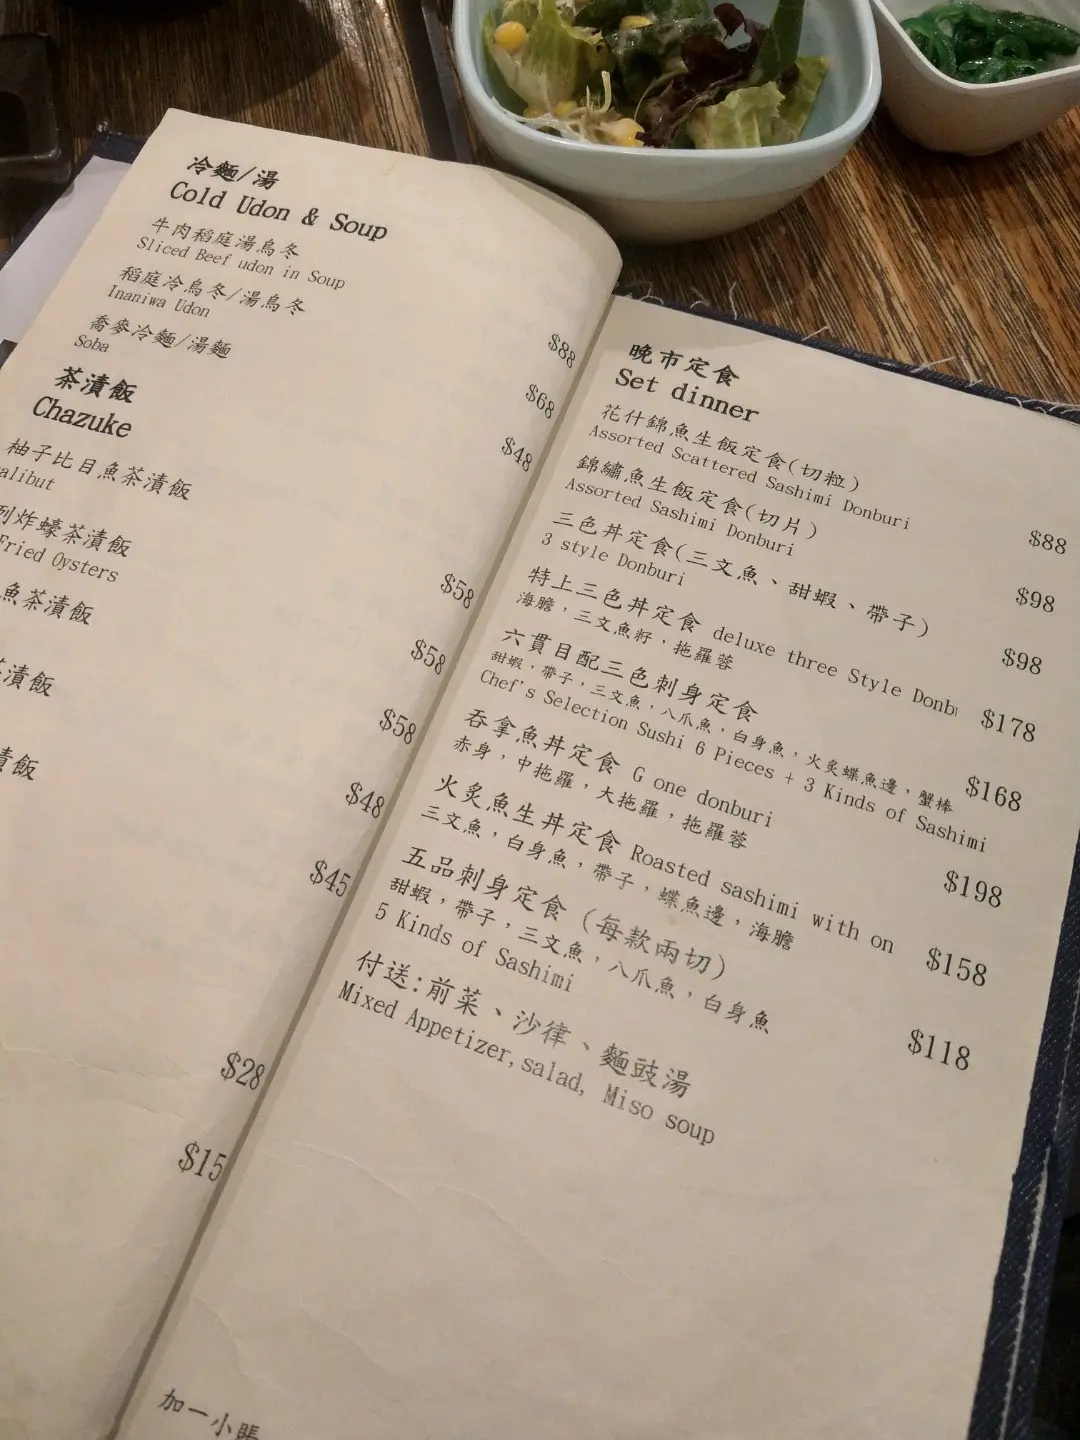 冷麵/湯
Cold Udon & Soup
牛肉稻庭湯烏冬
Sliced Beef udon in Soup
$88
稻庭冷烏冬/湯烏冬
Inaniwa Udon
$68
喬麥冷麵/湯麵
Soba
$48
茶漬飯
Chazuke
柚子比目魚茶漬飯
alibut
$58
列炸蠔茶漬飯
Fried Oysters
$58
魚茶漬飯
$58
漬飯
$48
漬飯
$45
$28
$15
晚市定食
Set dinner
花什錦魚生飯定食(切粒)
Assorted Scattered Sashimi Donburi
$88
錦繡魚生飯定食(切片)
Assorted Sashimi Donburi
$98
三色丼定食(三文魚、甜蝦、帶子)
3 style Donburi
$98
特上三色丼定食 deluxe three Style Donb
海膽，三文魚籽，拖羅蓉
$178
六貫目配三色刺身定食
甜蝦，帶子，三文魚，八爪魚，白身魚，火炙蝶魚邊，蟹棒
Chef's Selection Sushi 6 Pieces + 3 Kinds of Sashimi
$168
吞拿魚丼定食 G one donburi
赤身，中拖羅，大拖羅，拖羅蓉
$198
火炙魚生丼定食 Roasted sashimi with on
三文魚，白身魚，帶子，蝶魚邊，海膽
$158
五品刺身定食 (每款兩切)
甜蝦，帶子，三文魚，八爪魚，白身魚
5 Kinds of Sashimi
$118
付送:前菜、沙律、麵豉湯
Mixed Appetizer, salad, Miso soup
加一小賬